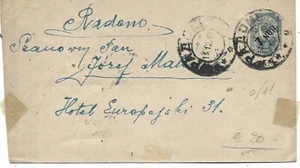 Radom.
Szanowny Pan
Józef
Hotel Europejski 31.
0/11
€ 20-